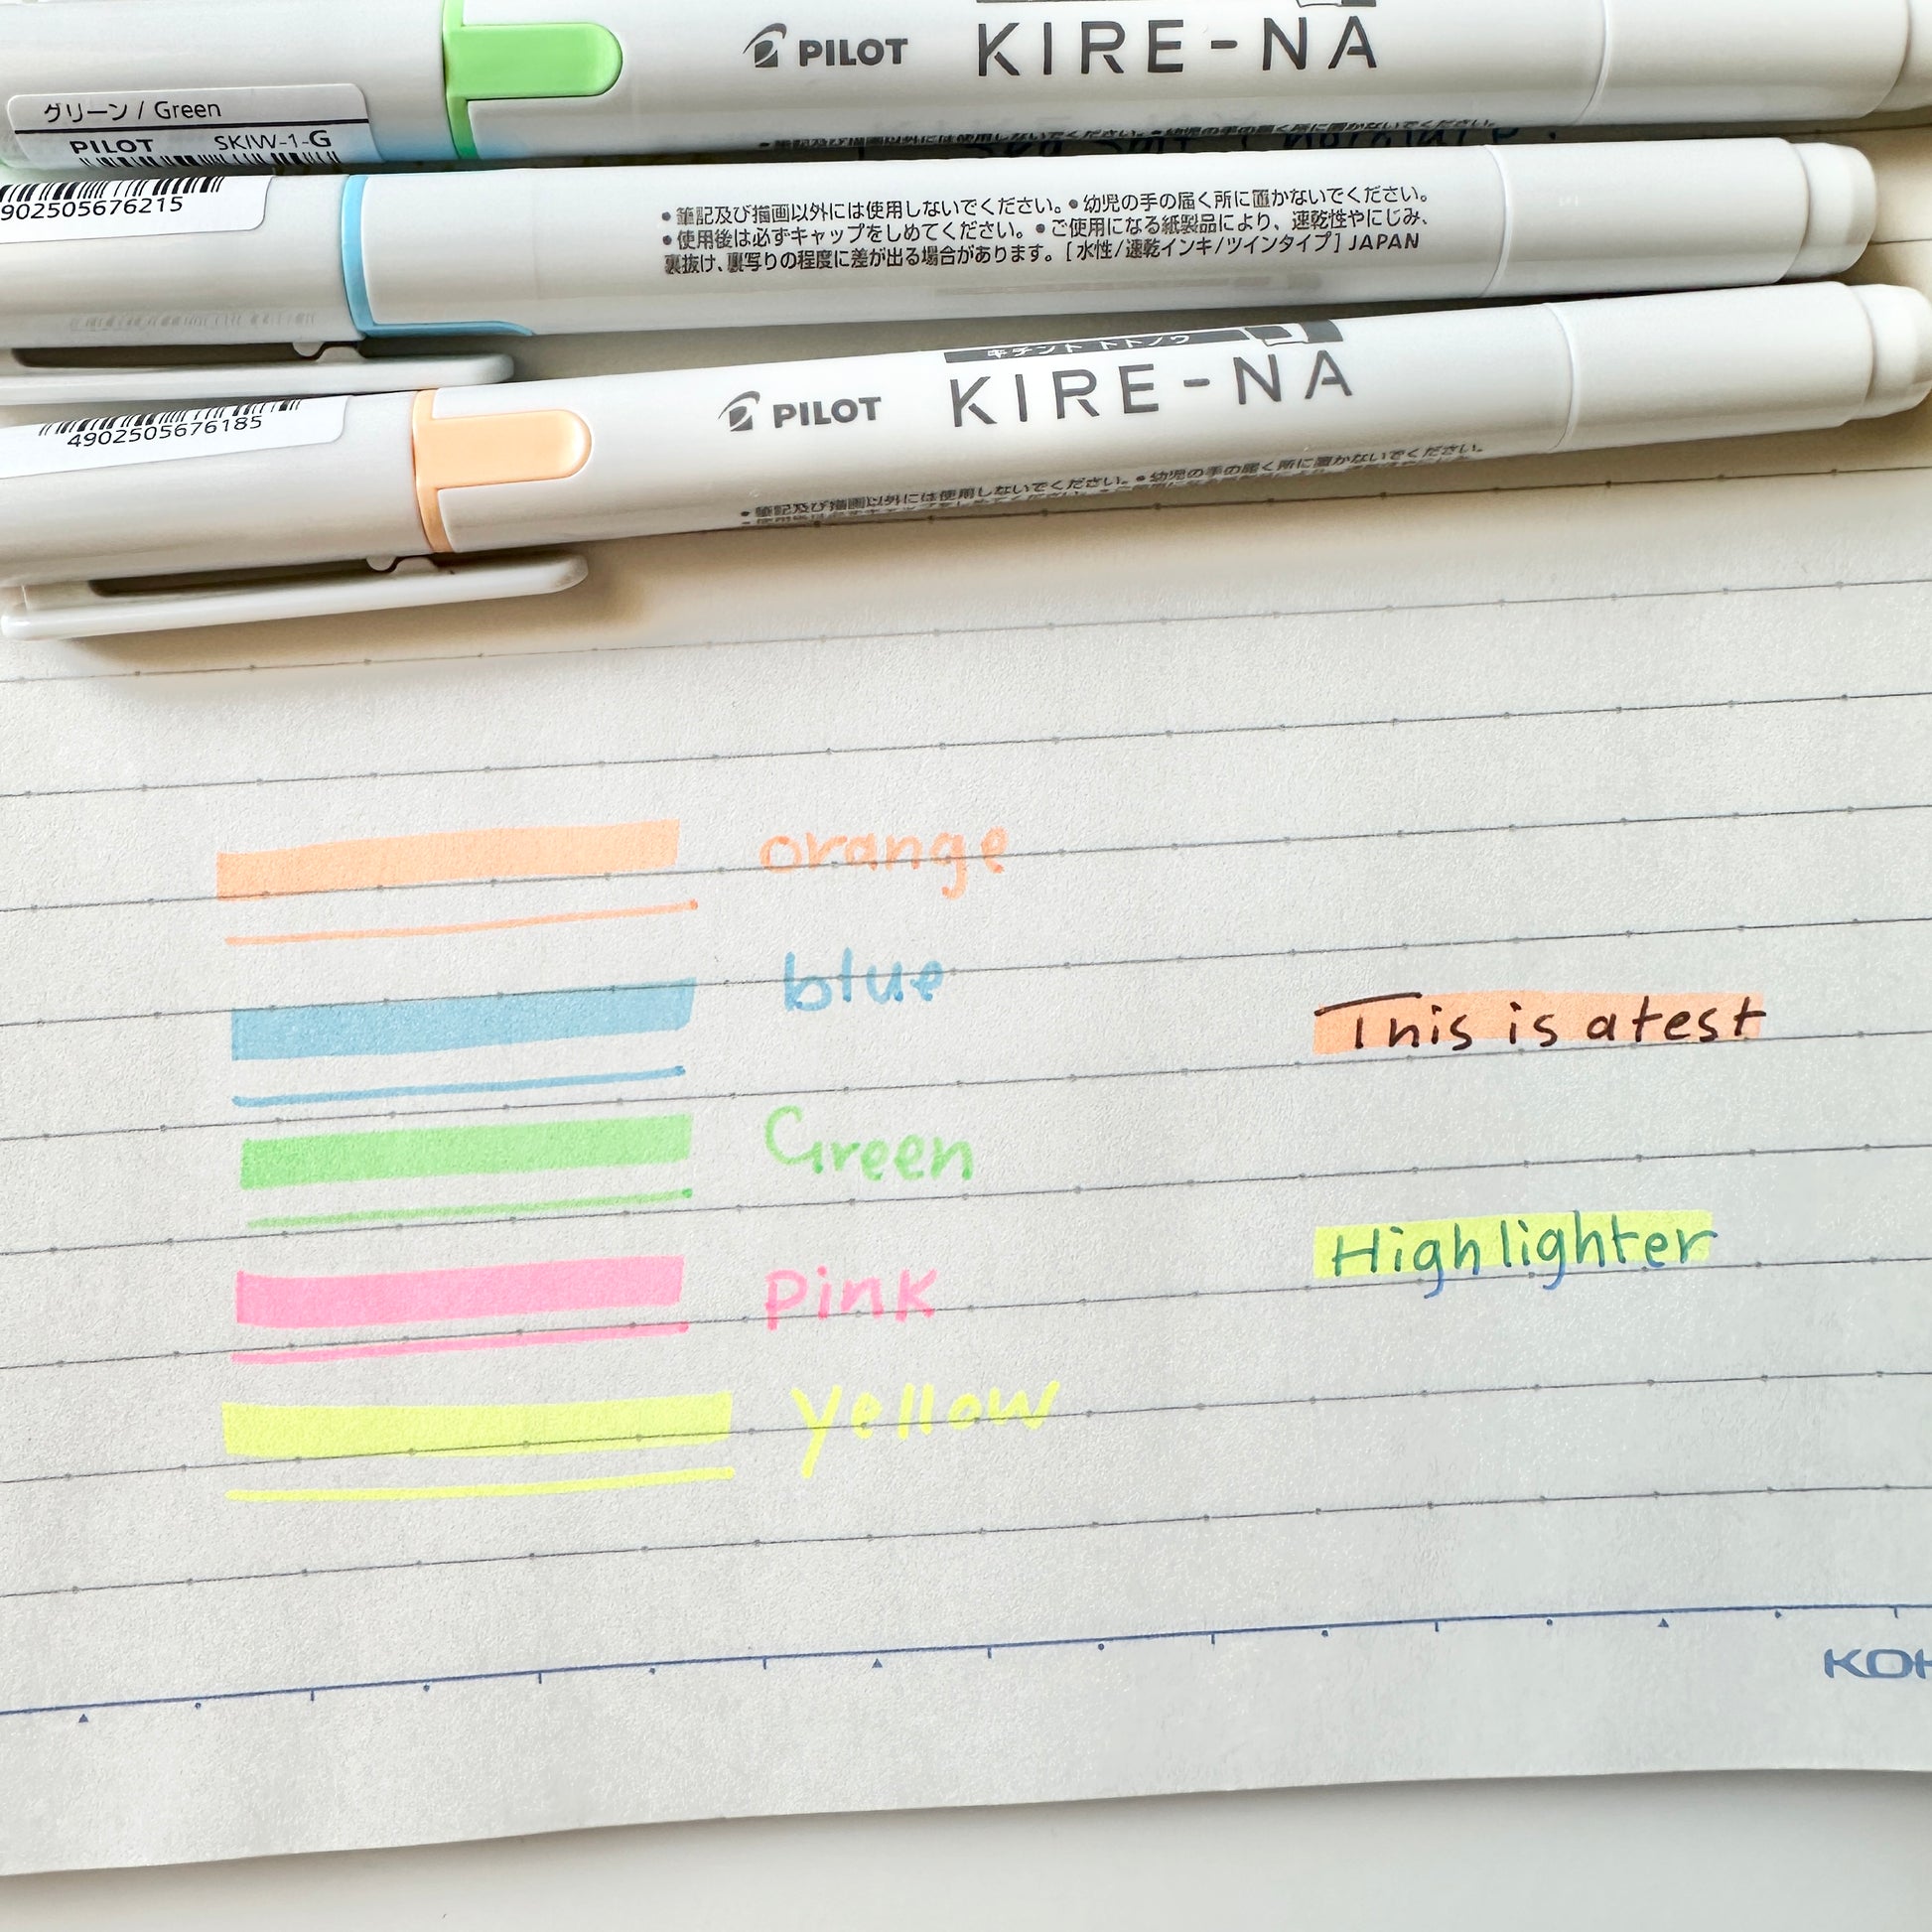 PILOT KIRE-NA
グリーン / Green
PILOT SKIW-1-G
902505676215
•筆記及び描画以外には使用しないでください。•幼児の手の届く所に置かないでください。
•使用後は必ずキャップをしめてください。•ご使用になる紙製品により、速乾性やにじみ、
裏抜け、裏写りの程度に差が出る場合があります。[水性/速乾インキ/ツインタイプ] JAPAN
キチント トトノウ
PILOT KIRE-NA
4902505676185
•筆記及び描画以外には使用しないでください。•幼児の手の届く所に置かないでください。
orange
blue
This is a test
Green
Highlighter
Pink
yellow